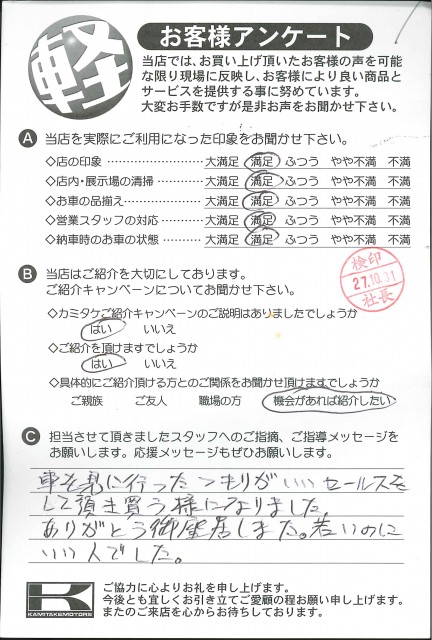 軽
お客様アンケート
当店では、お買い上げ頂いたお客様の声を可能
な限り現場に反映し、お客様により良い商品と
サービスを提供する事に努めています。
大変お手数ですが是非お声をお聞かせ下さい。
A 当店を実際にご利用になった印象をお聞かせ下さい。
◇店の印象 ………………… 大満足 満足 ふつう やや不満 不満
◇店内・展示場の清掃 ………… 大満足 満足 ふつう やや不満 不満
◇お車の品揃え ……………… 大満足 満足 ふつう やや不満 不満
◇営業スタッフの対応 ………… 大満足 満足 ふつう やや不満 不満
◇納車時のお車の状態 ………… 大満足 満足 ふつう やや不満 不満
B 当店はご紹介を大切にしております。
ご紹介キャンペーンについてお聞かせ下さい。
検印
27.10.31
社長
◇カミタケご紹介キャンペーンのご説明はありましたでしょうか
はい いいえ
◇ご紹介を頂けますでしょうか
はい いいえ
◇具体的にご紹介頂ける方とのご関係をお聞かせ頂けますでしょうか
ご親族 ご友人 職場の方 機会があれば紹介したい
C 担当させて頂きましたスタッフへのご指摘、ご指導メッセージを
お願いします。応援メッセージもぜひお願いします。
車を見に行ったつもりがいいセールスを
して頂き買う様になりました。
ありがとう御座居しました。若いのに
いい人でした。
K
KAMITAKEMOTORS
ご協力に心よりお礼を申し上げます。
今後とも宜しくお引き立てご愛顧の程お願い申し上げます。
またのご来店を心からお待ちしております。